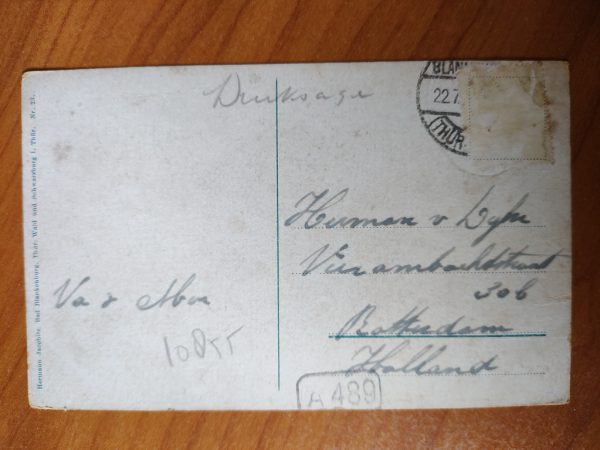 Drucksage
BLAN
22.7.
(THÜR
Herman v Dyk
Vierambachtstraat
30b
Rotterdam
Holland
Va & Moe
10855
A 489
Hermann Jacobitz, Bad Blankenburg, Thür. Wald und Schwarzburg i. Thür. Nr. 23.